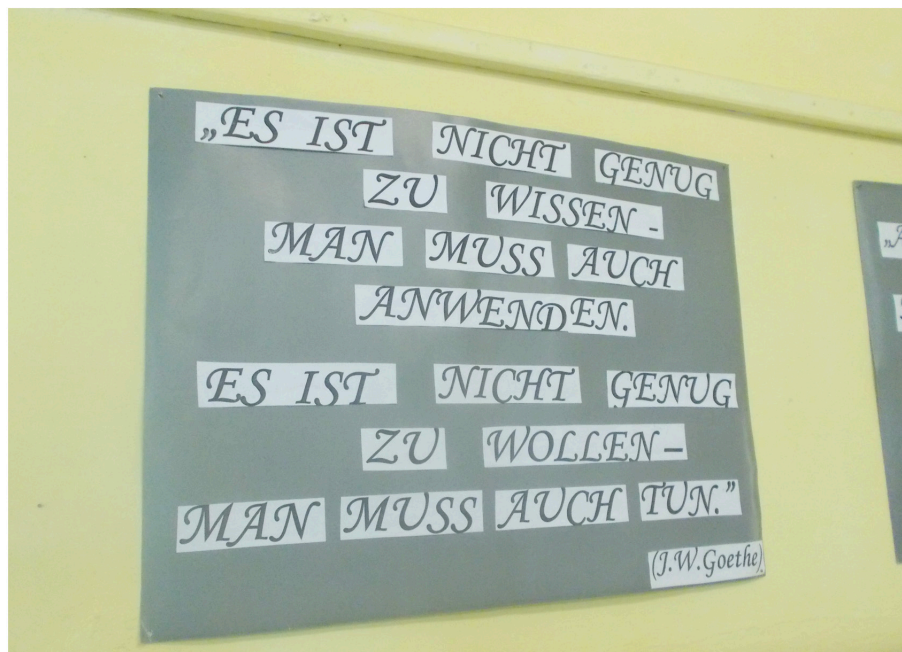 „ES IST NICHT GENUG
ZU WISSEN -
MAN MUSS AUCH
ANWENDEN.
ES IST NICHT GENUG
ZU WOLLEN –
MAN MUSS AUCH TUN.”
(J.W.Goethe)